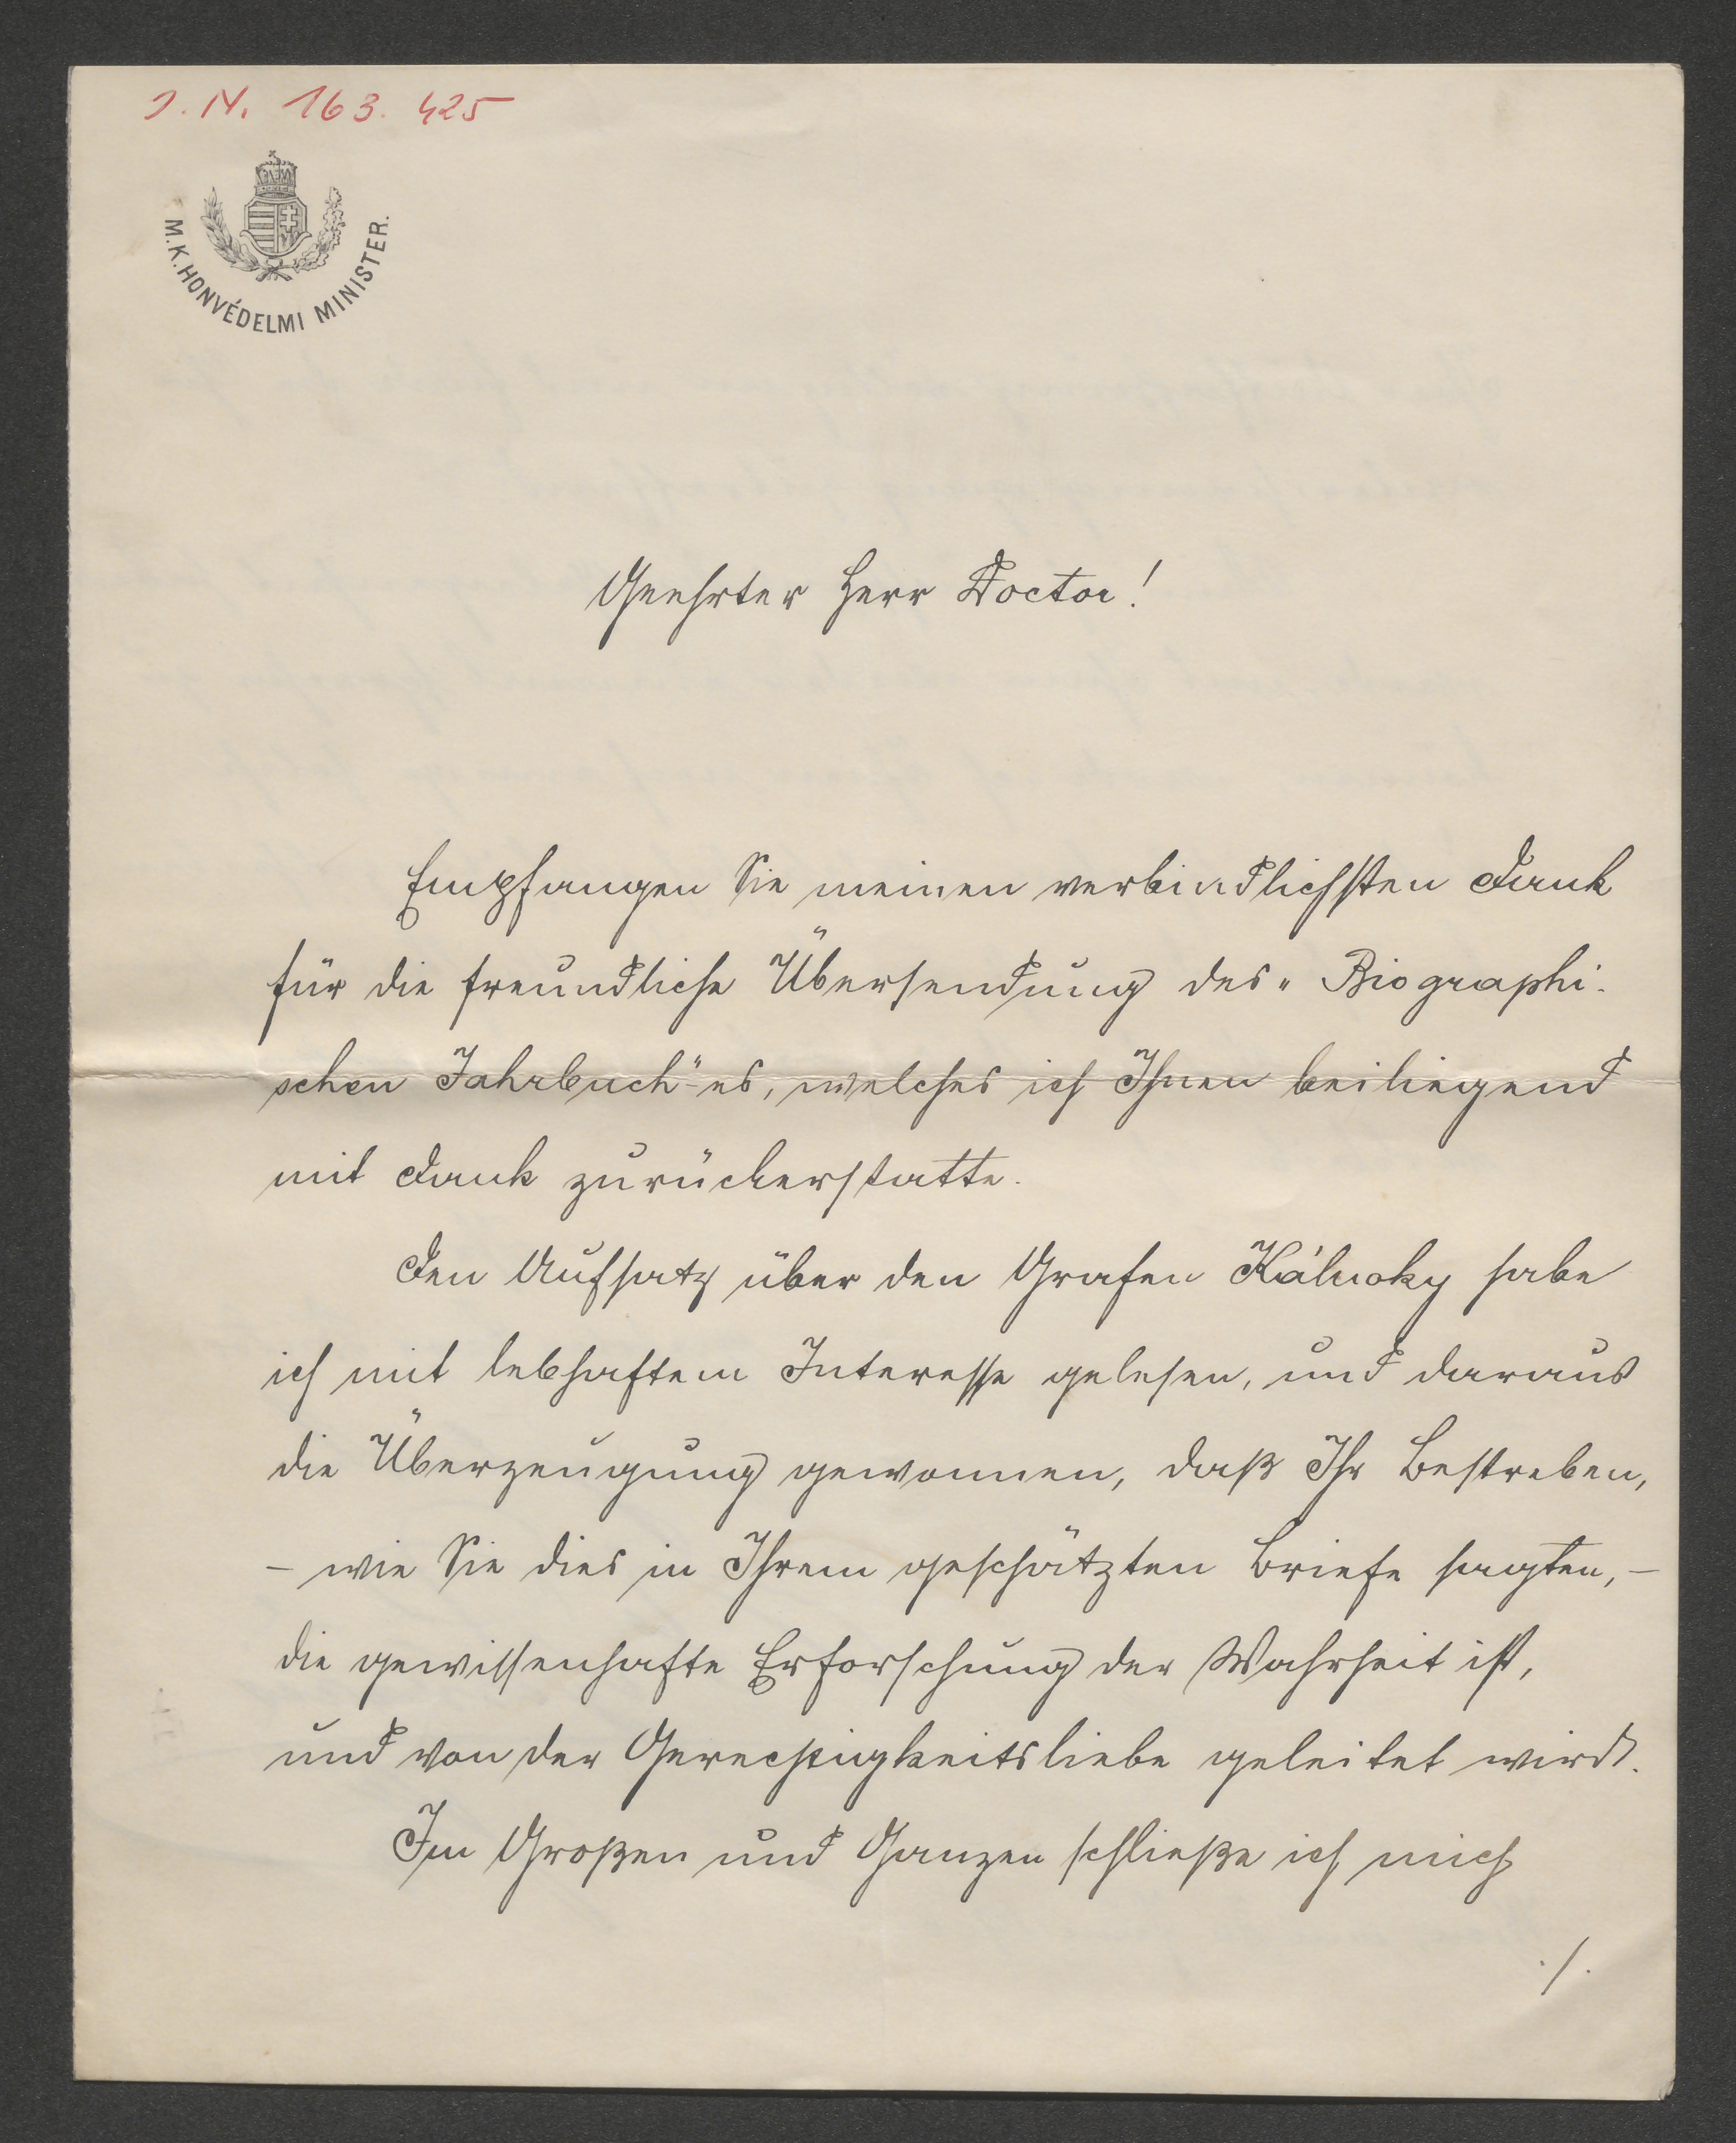 J. N. 163.425
M. K. HONVÉDELMI MINISTER.
Geehrter Herr Doctor!
Empfangen Sie meinen verbindlichsten Dank
für die freundliche Übersendung des „Biographi-
schen Jahrbuch"-es, welches ich Ihnen beiliegend
mit Dank zurückerstatte.
Den Aufsatz über den Grafen Kálnoky habe
ich mit lebhaftem Interesse gelesen, und daraus
die Überzeugung gewonnen, daß Ihr Bestreben,
– wie Sie dies in Ihrem geschätzten Briefe sagten, –
die gewissenhafte Erforschung der Wahrheit ist,
und von der Gerechtigkeitsliebe geleitet wird.
Im Großen und Ganzen schließe ich mich
./.